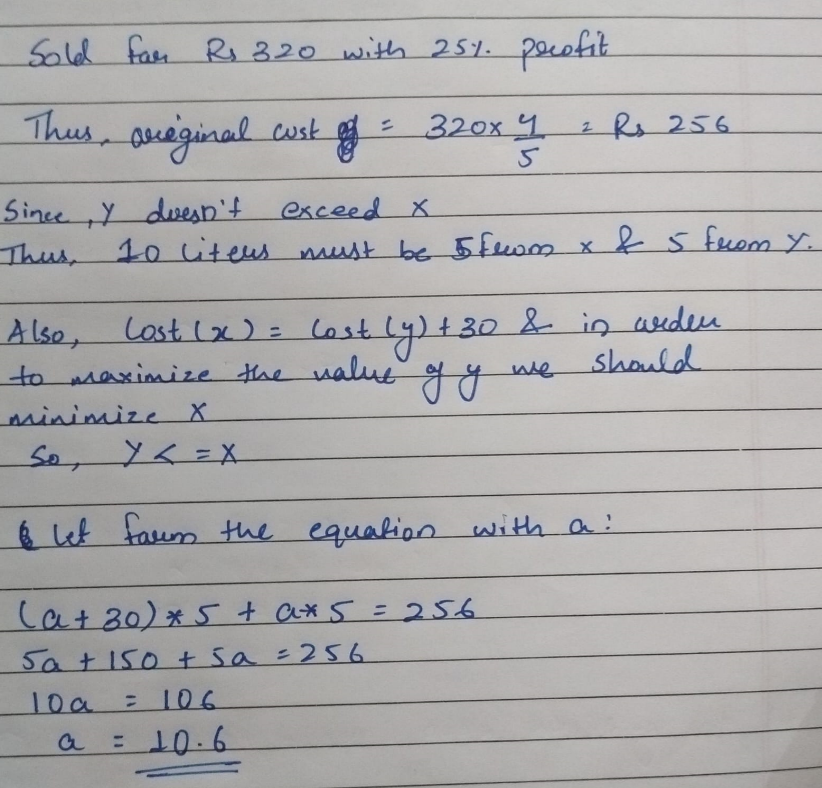 Sold for Rs 320 with 25%. profit
Thus, original cost = 320 x 4/5 = Rs 256
Since, Y doesn't exceed X
Thus, 10 liters must be 5 from x & 5 from Y.
Also, Cost(x) = Cost(y) + 30 & in order
to maximize the value of y we should
minimize X
So, Y < = X
Let form the equation with a:
(a + 30) * 5 + a * 5 = 256
5a + 150 + 5a = 256
10a = 106
a = 10.6